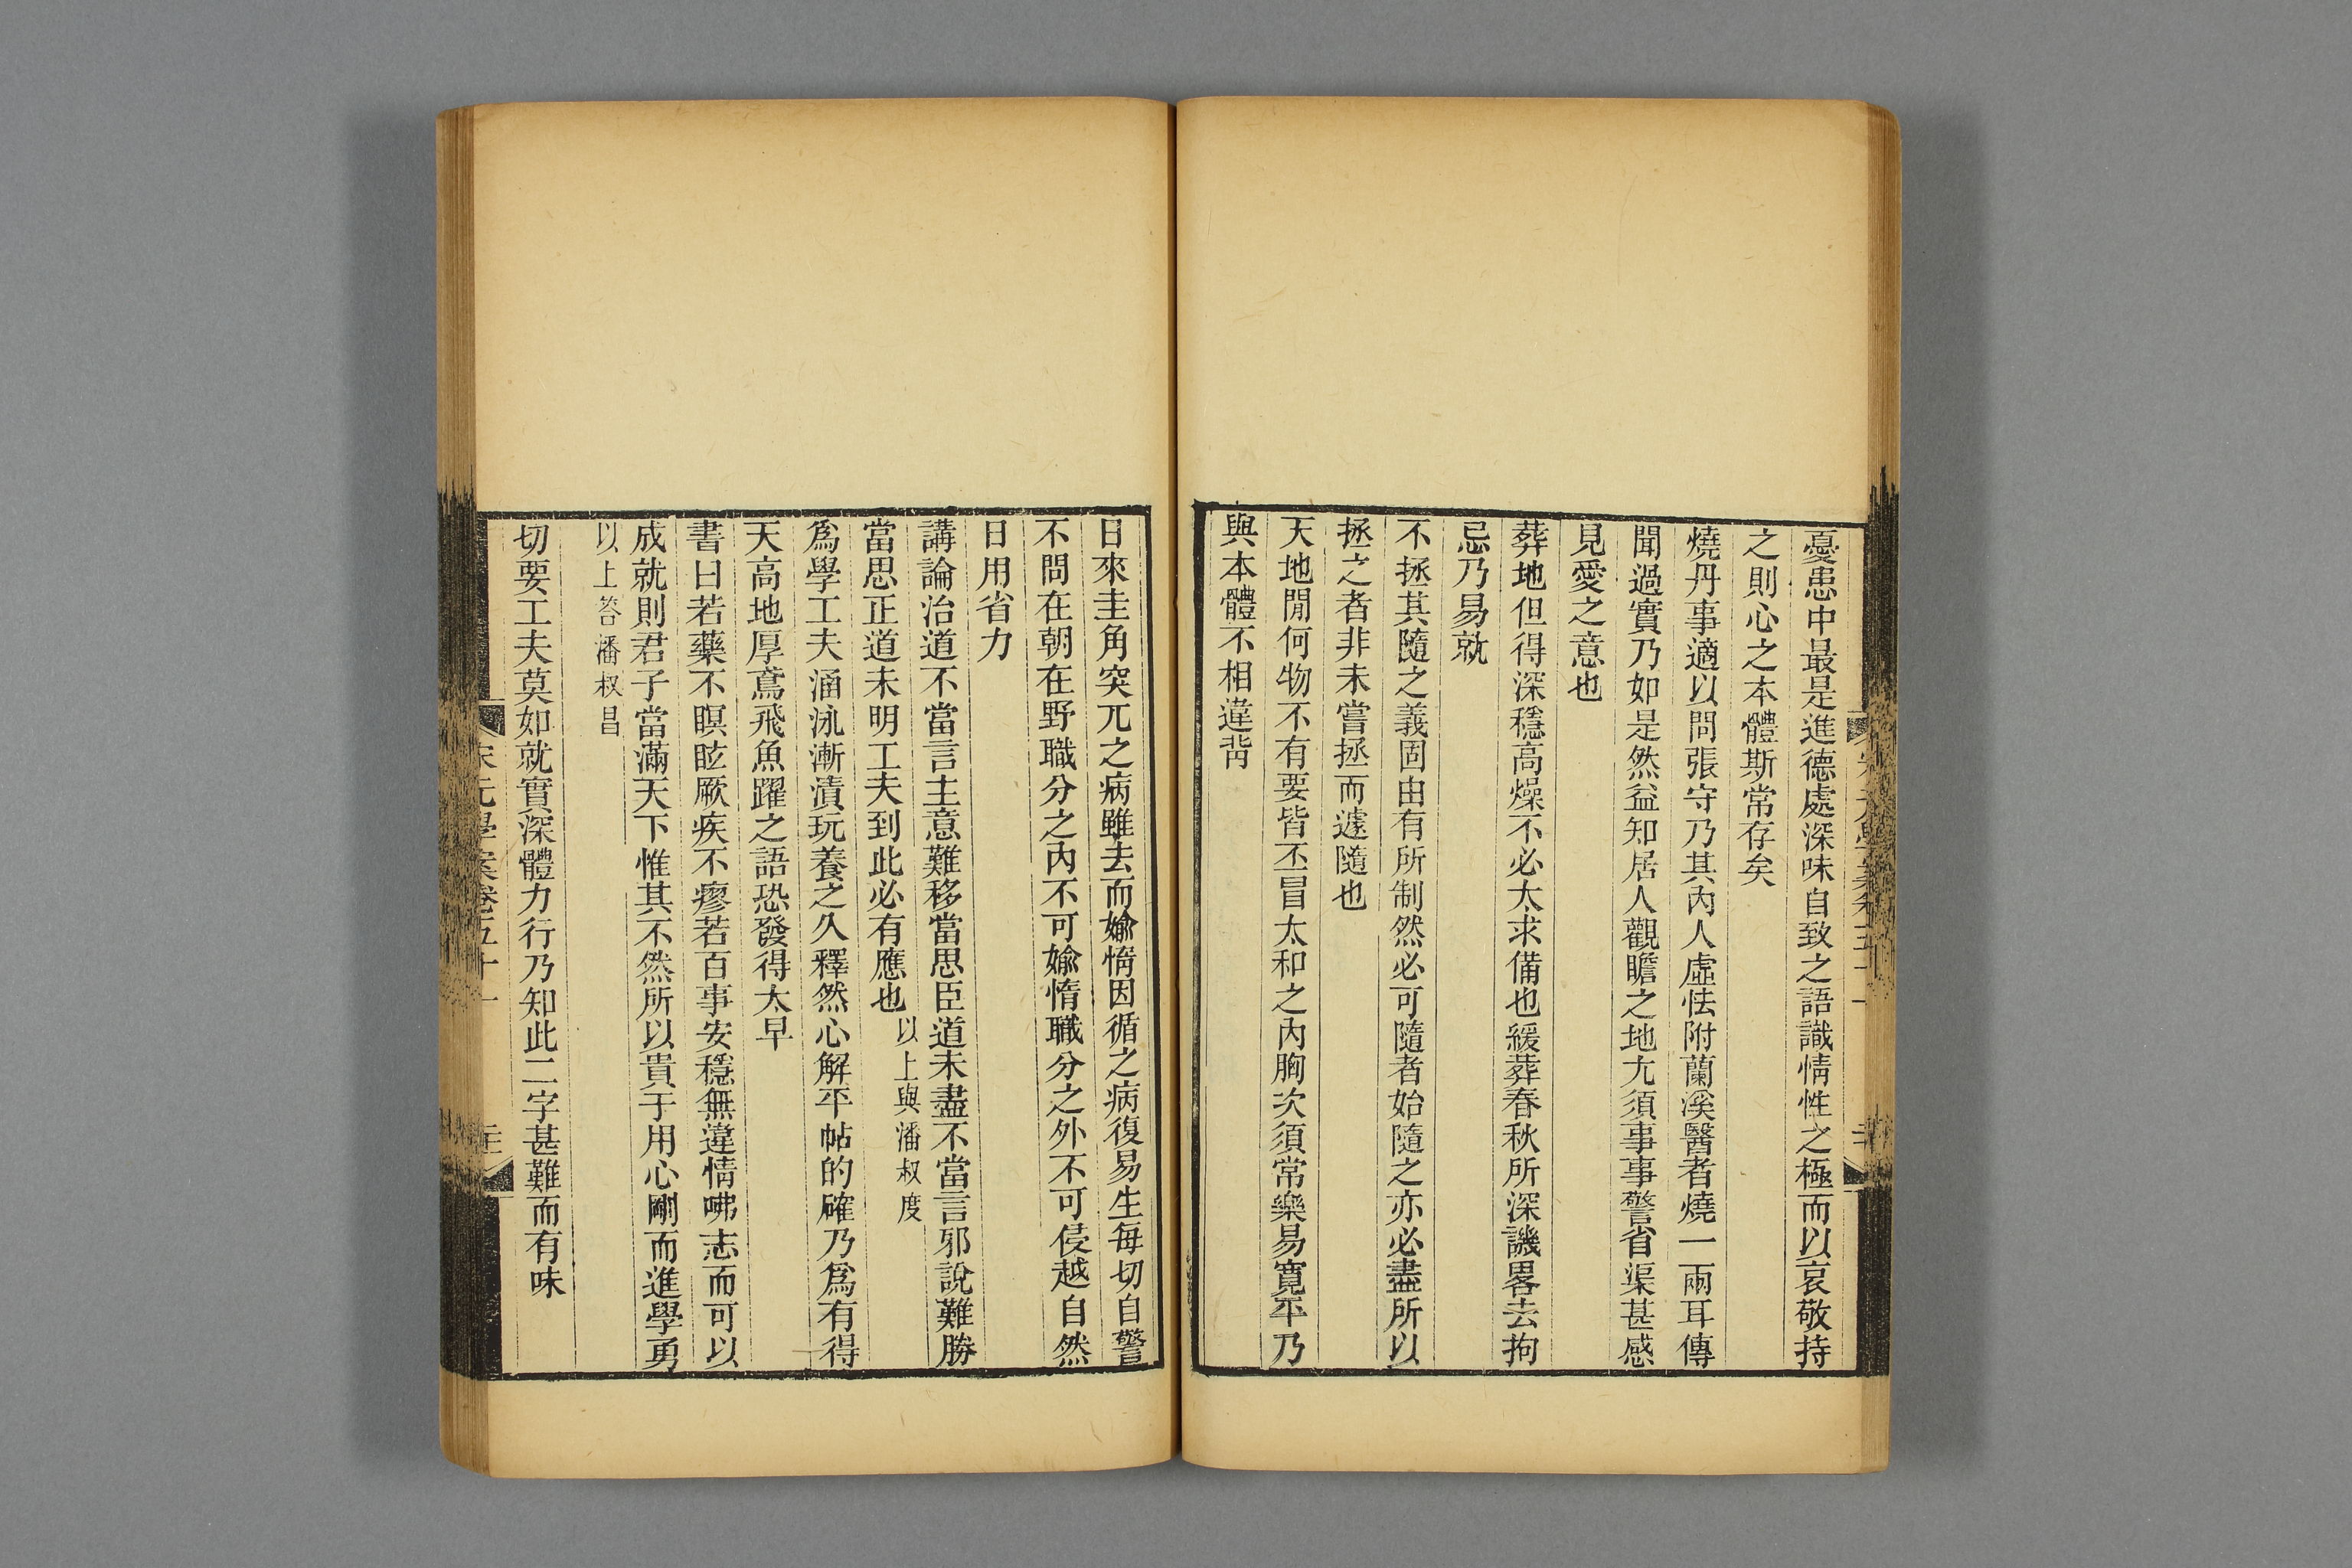 憂患中最是進德處深味自致之語識情性之極而以哀敬持
之則心之本體斯常存矣
燒丹事適以問張守乃其內人虛怯附蘭溪醫者燒一兩耳傳
聞過實乃如是然益知居人觀瞻之地尤須事事警省渠甚感
見愛之意也
葬地但得深穩高燥不必太求備也緩葬春秋所深譏畧去拘
忌乃易就
不拯其隨之義固由有所制然必可隨者始隨之亦必盡所以
拯之者非未嘗拯而遽隨也
天地閒何物不有要皆丕冒太和之內胸次須常樂易寬平乃
與本體不相違背
日來圭角突兀之病雖去而媮惰因循之病復易生每切自警
不問在朝在野職分之內不可媮惰職分之外不可侵越自然
日用省力
講論治道不當言主意難移當思臣道未盡不當言邪說難勝
當思正道未明工夫到此必有應也以上與潘叔度
爲學工夫涵泳漸漬玩養之久釋然心解平帖的確乃爲有得
天高地厚鳶飛魚躍之語恐發得太早
書曰若藥不瞑眩厥疾不瘳若百事安穩無違情咈志而可以
成就則君子當滿天下惟其不然所以貴于用心剛而進學勇
以上答潘叔昌
切要工夫莫如就實深體力行乃知此二字甚難而有味
宋元學案卷五十一